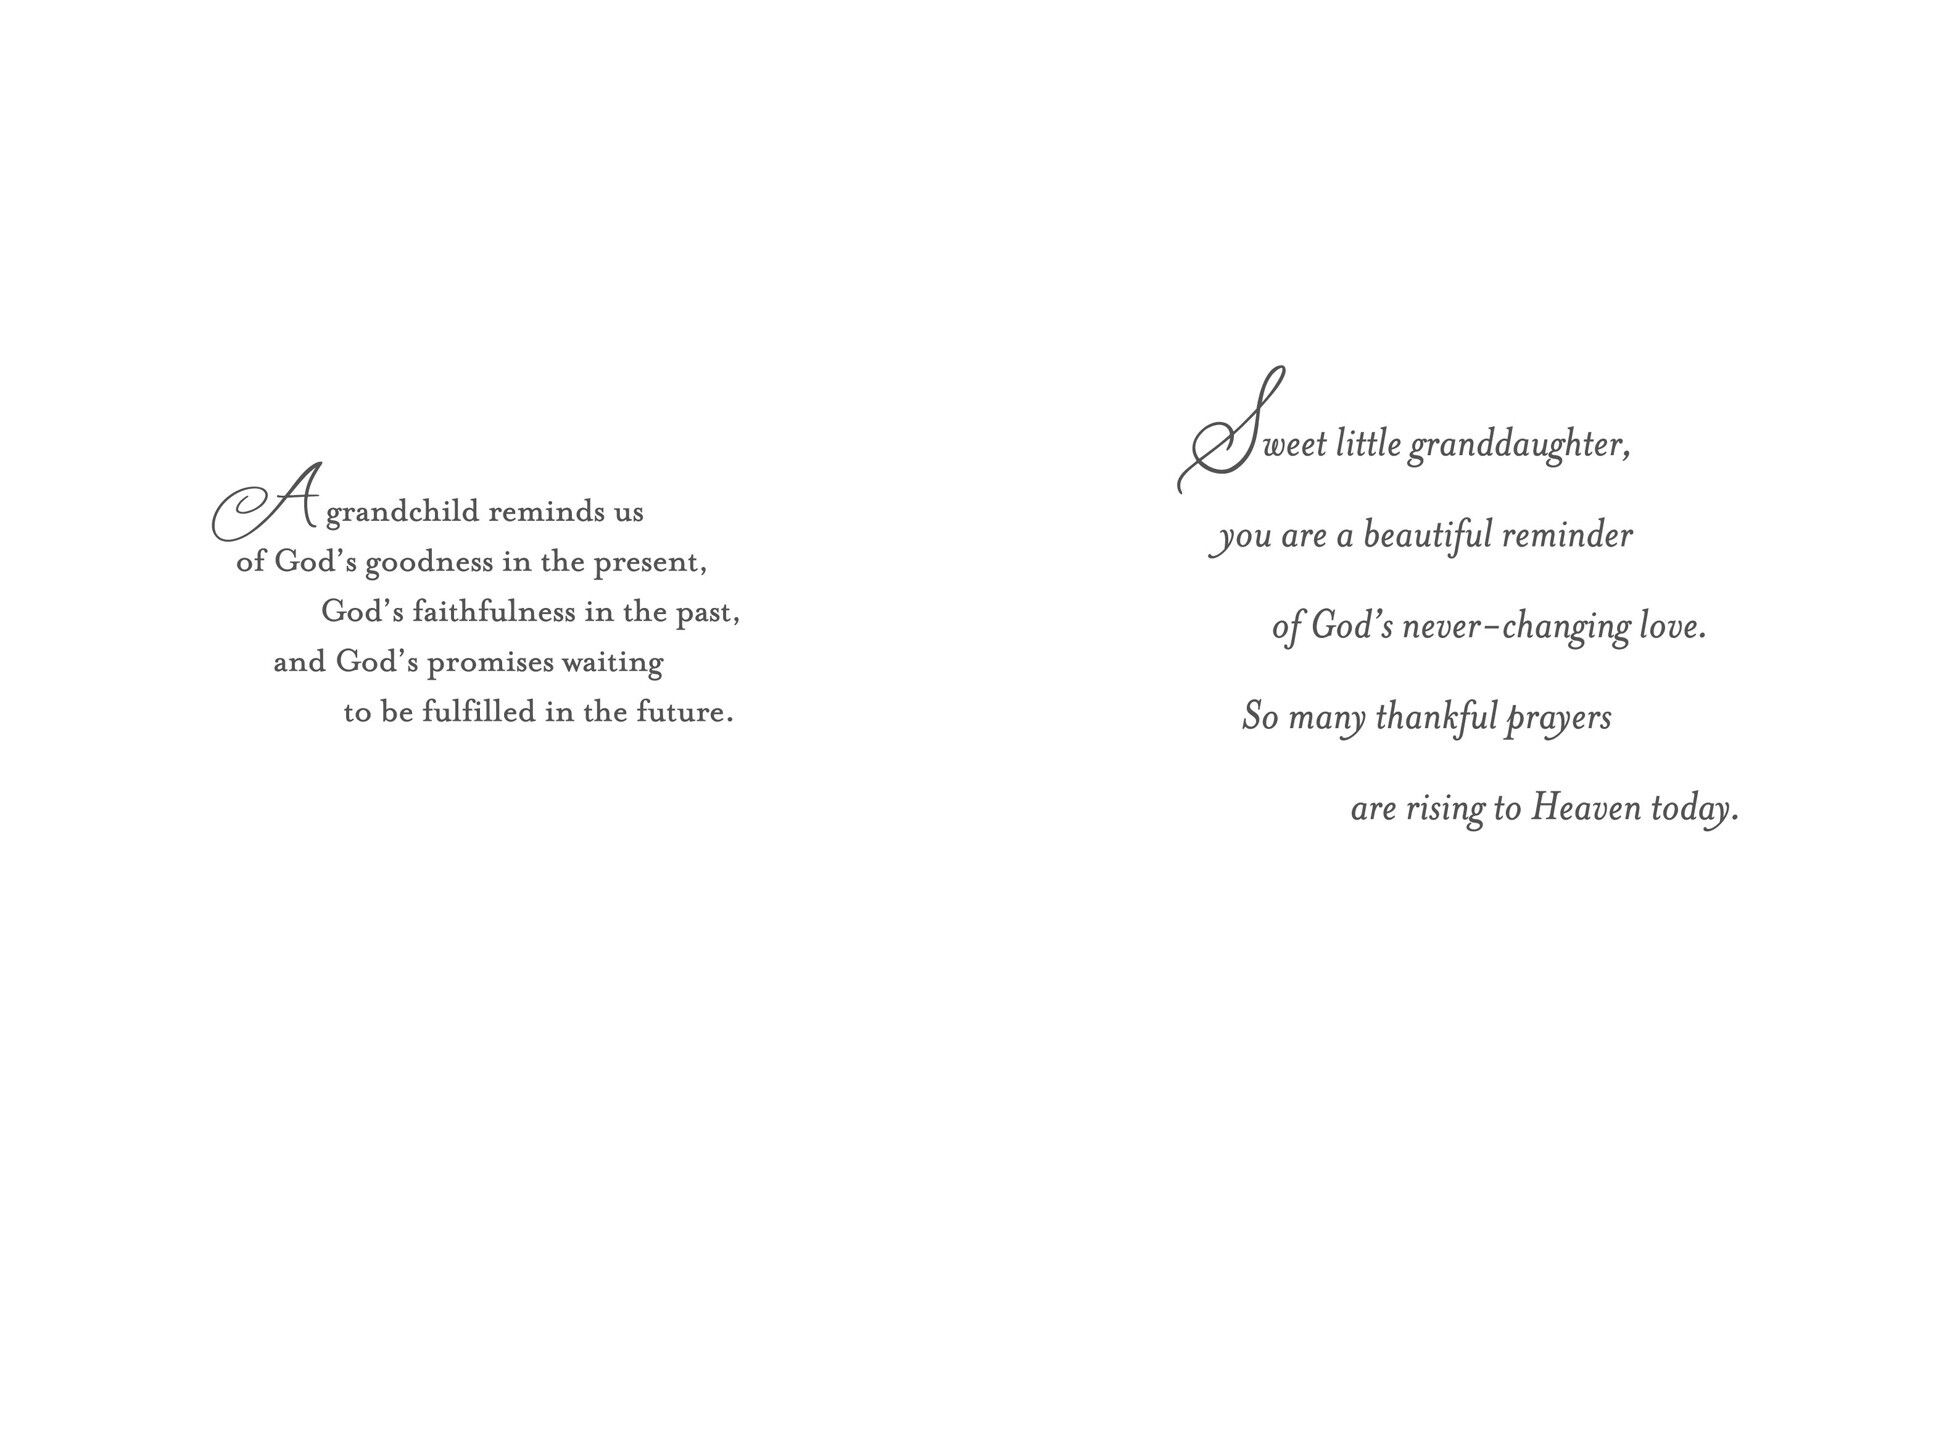 A grandchild reminds us
of God’s goodness in the present,
God’s faithfulness in the past,
and God’s promises waiting
to be fulfilled in the future.
Sweet little granddaughter,
you are a beautiful reminder
of God’s never-changing love.
So many thankful prayers
are rising to Heaven today.